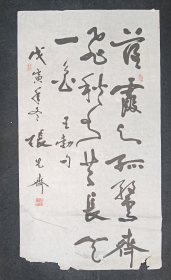 落霞与孤鹜齐
飞秋水共长天
一色 王勃句
戊寅年冬 张先齐